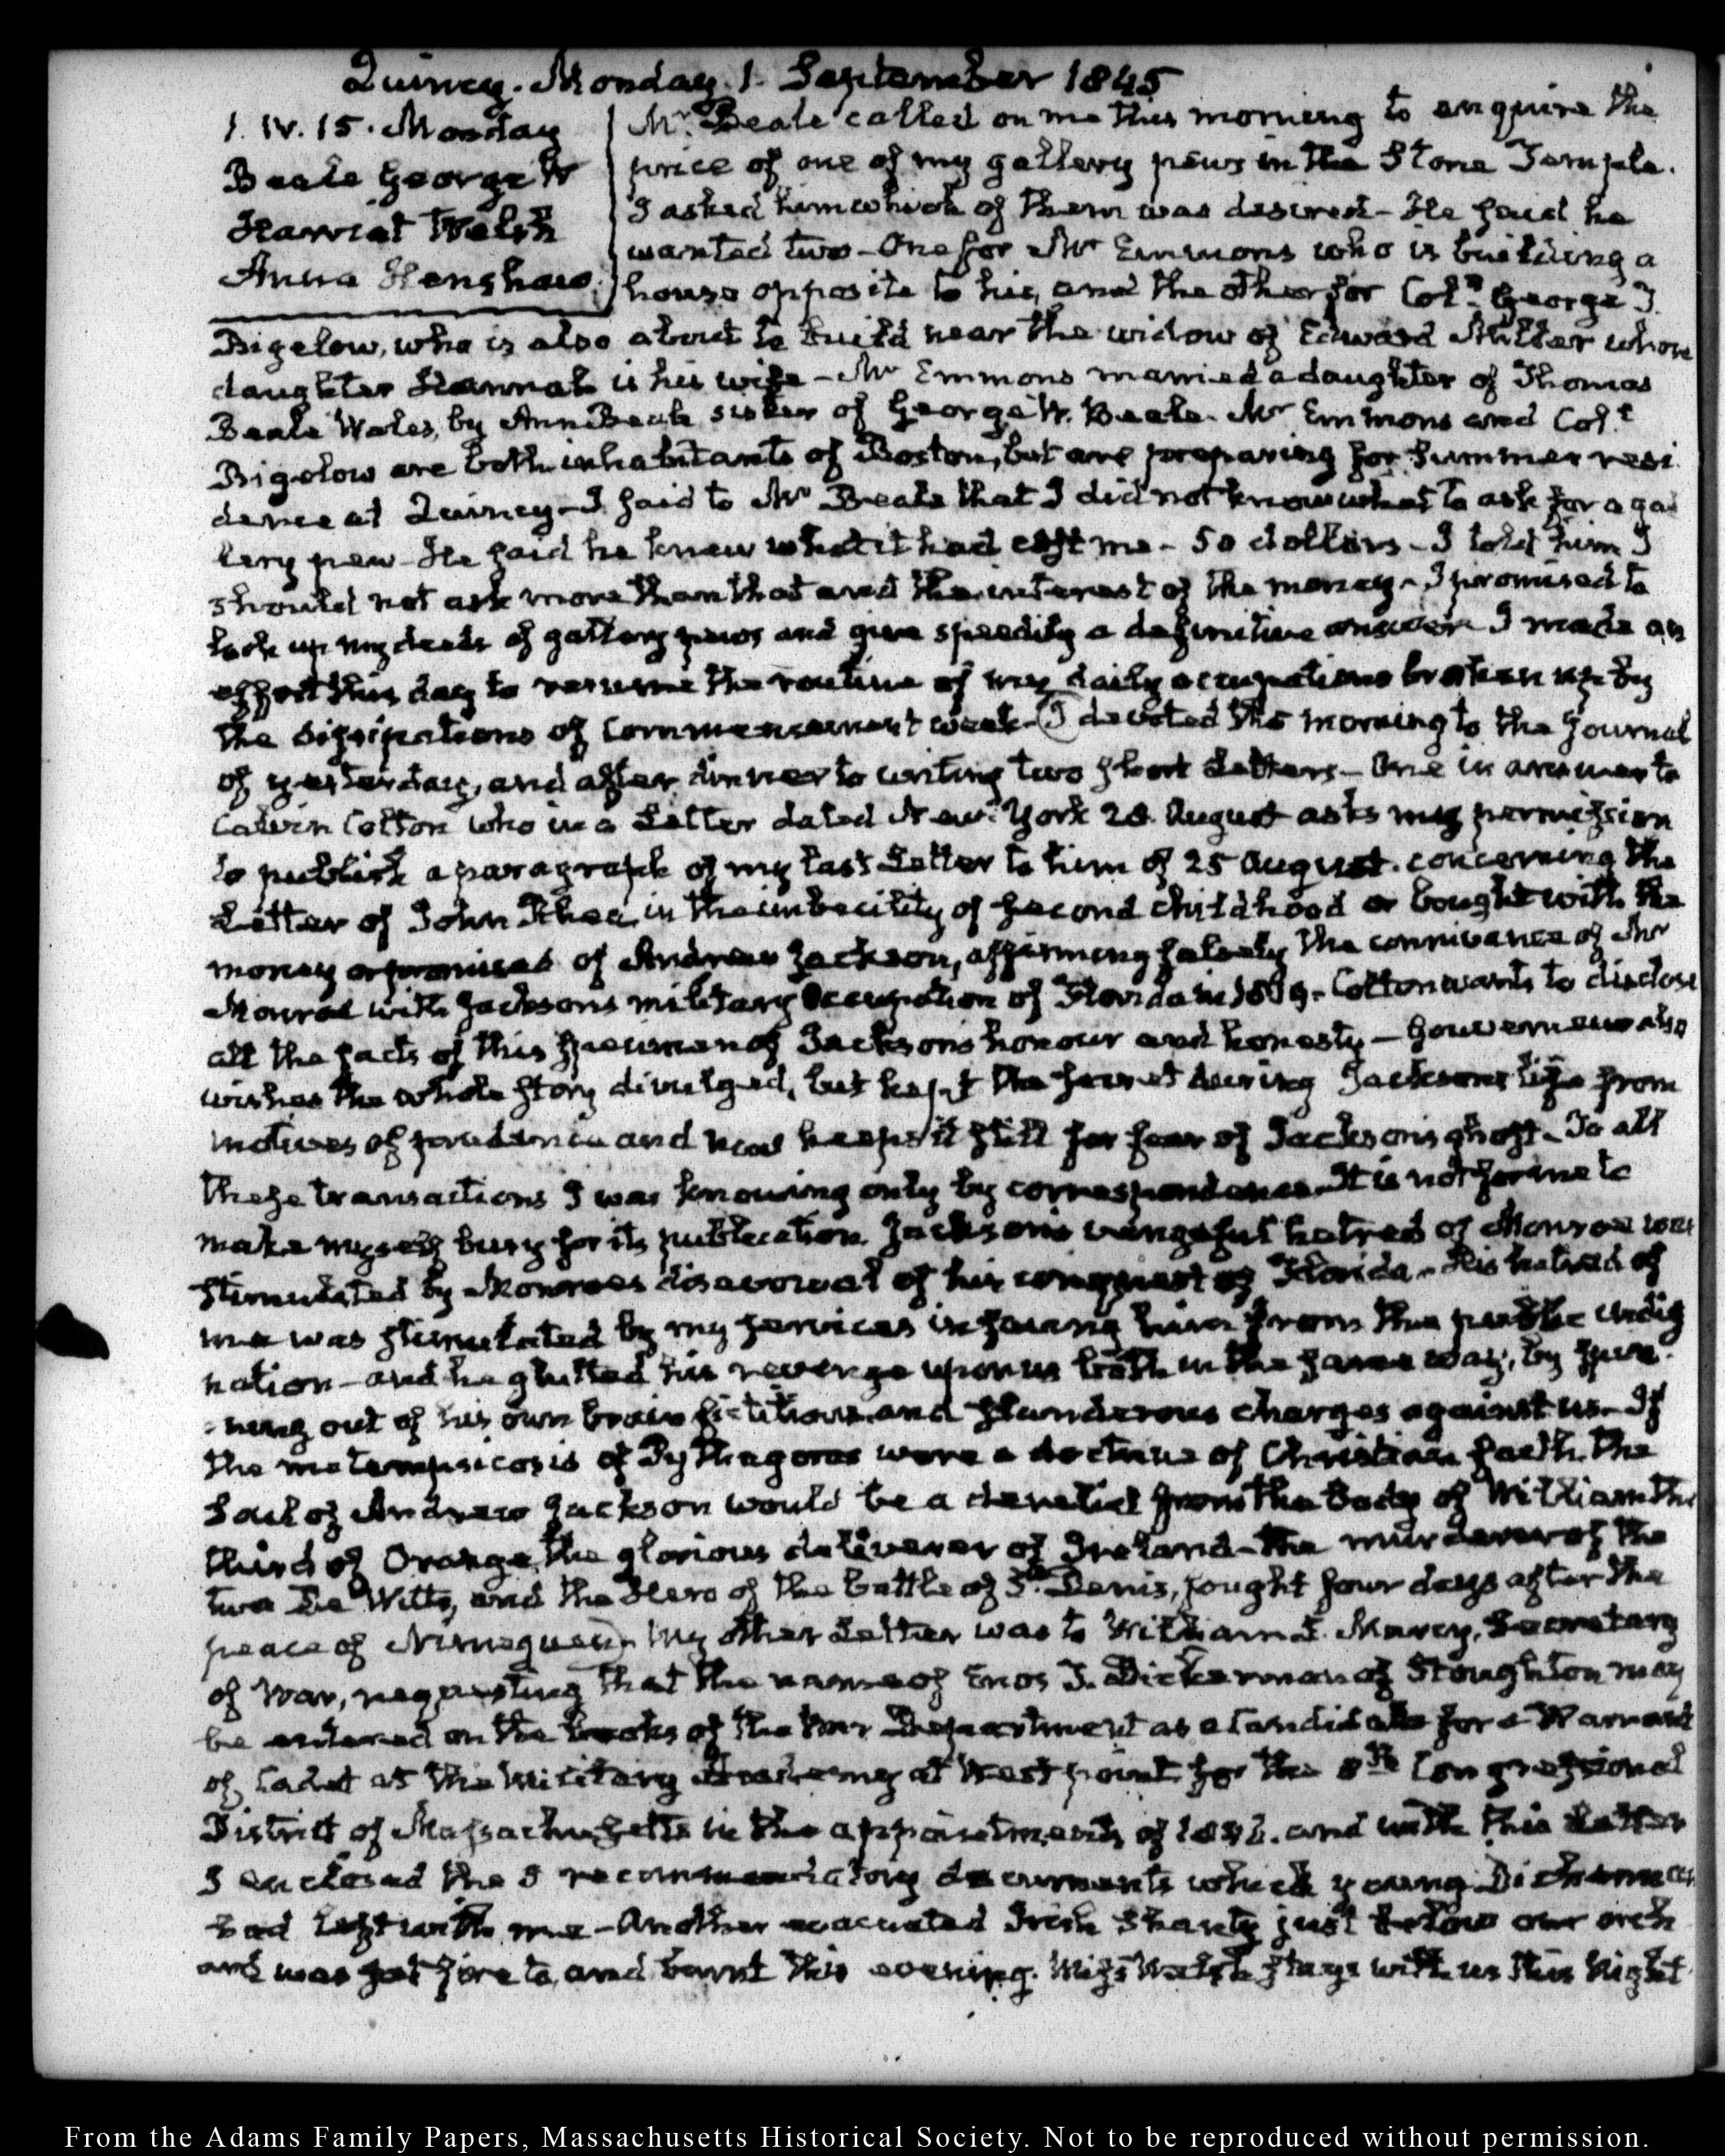 Quincy. Monday. 1. September 1845
1. IV. 15. Monday
Beale George W
Harriet Welsh
Anna Henshaw.
Mr. Beale called on me this morning to enquire the
price of one of my gallery pews in the Stone Temple.
I asked him which of them was desired - He said he
wanted two - One for Mr Emmons who is building a
house opposite to his, and the other for Col. George T.
Bigelow, who is also about to build near the widow of Edward Miller whose
daughter Hannah is his wife - Mr Emmons married a daughter of Thomas
Beale Wales, by Ann Beale sister of George W. Beale. Mr Emmons and Col.
Bigelow are both inhabitants of Boston, but are preparing for summer resi
dence at Quincy - I said to Mr Beale that I did not know what to ask for a gal
lery pew - He said he knew what it had cost me - 50 dollars - I told him I
should not ask more than that and the interest of the money - I promised to
look up my deeds of gallery pews and give speedily a definitive answer I made an
effort this day to resume the routine of my daily occupations broken up by
the dissipations of Commencement week - I devoted the morning to the Journal
of yesterday, and after dinner to writing two short Letters - One in answer to
Calvin Colton who in a Letter dated New York 28. August asks my permission
to publish a paragraph of my last Letter to him of 25 August. concerning the
Letter of John Rhea, in the imbecility of second childhood or bought with the
money or promises of Andrew Jackson, affirming falsely the connivance of Mr
Monroe with Jacksons military occupation of Florida in - Colton wants to disclose
all the facts of this specimen of Jackson's honour and honesty - Gouverneur also
wishes the whole story divulged, but kept the secret during Jacksons life from
motives of prudence and now keeps it still for fear of Jackson's ghost - To all
these transactions I was knowing only by correspondence. It is not for me to
make myself busy for its publication. Jackson's vengeful hatred of Monroe was
stimulated by Monroes disavowal of his conquest of Florida - His hatred of
me was stimulated by my services in saving him from the public indig
nation - and he glutted his revenge upon us both in the same way, by spin
ning out of his own brain fictitious and slanderous charges against us - If
the metempsicosis of Pythagoras were a doctrine of Christian faith. the
Soul of Andrew Jackson would be a derelict from the body of William the
third of Orange, the glorious deliverer of Ireland - the murderer of the
two De Witts, and the Hero of the battle of St. Denis, fought four days after the
peace of Nimeguen. My other Letter was to William L. Marcy, Secretary
of War, requesting that the name of Enos T. Dickerman of Stoughton may
be entered on the books of the War Department as a Candidate for a Warrant
of Cadet at the Military Academy at West point for the 8th Congressional
District of Massachusetts in the appointments of 1846. and with this Letter
I enclosed the 5 recommendatory documents which young Dickerman
had left with me - Another evacuated Irish Shanty just below our orch
ard was set fire to, and burnt this evening. Miss Welsh stays with us this night
From the Adams Family Papers, Massachusetts Historical Society. Not to be reproduced without permission.